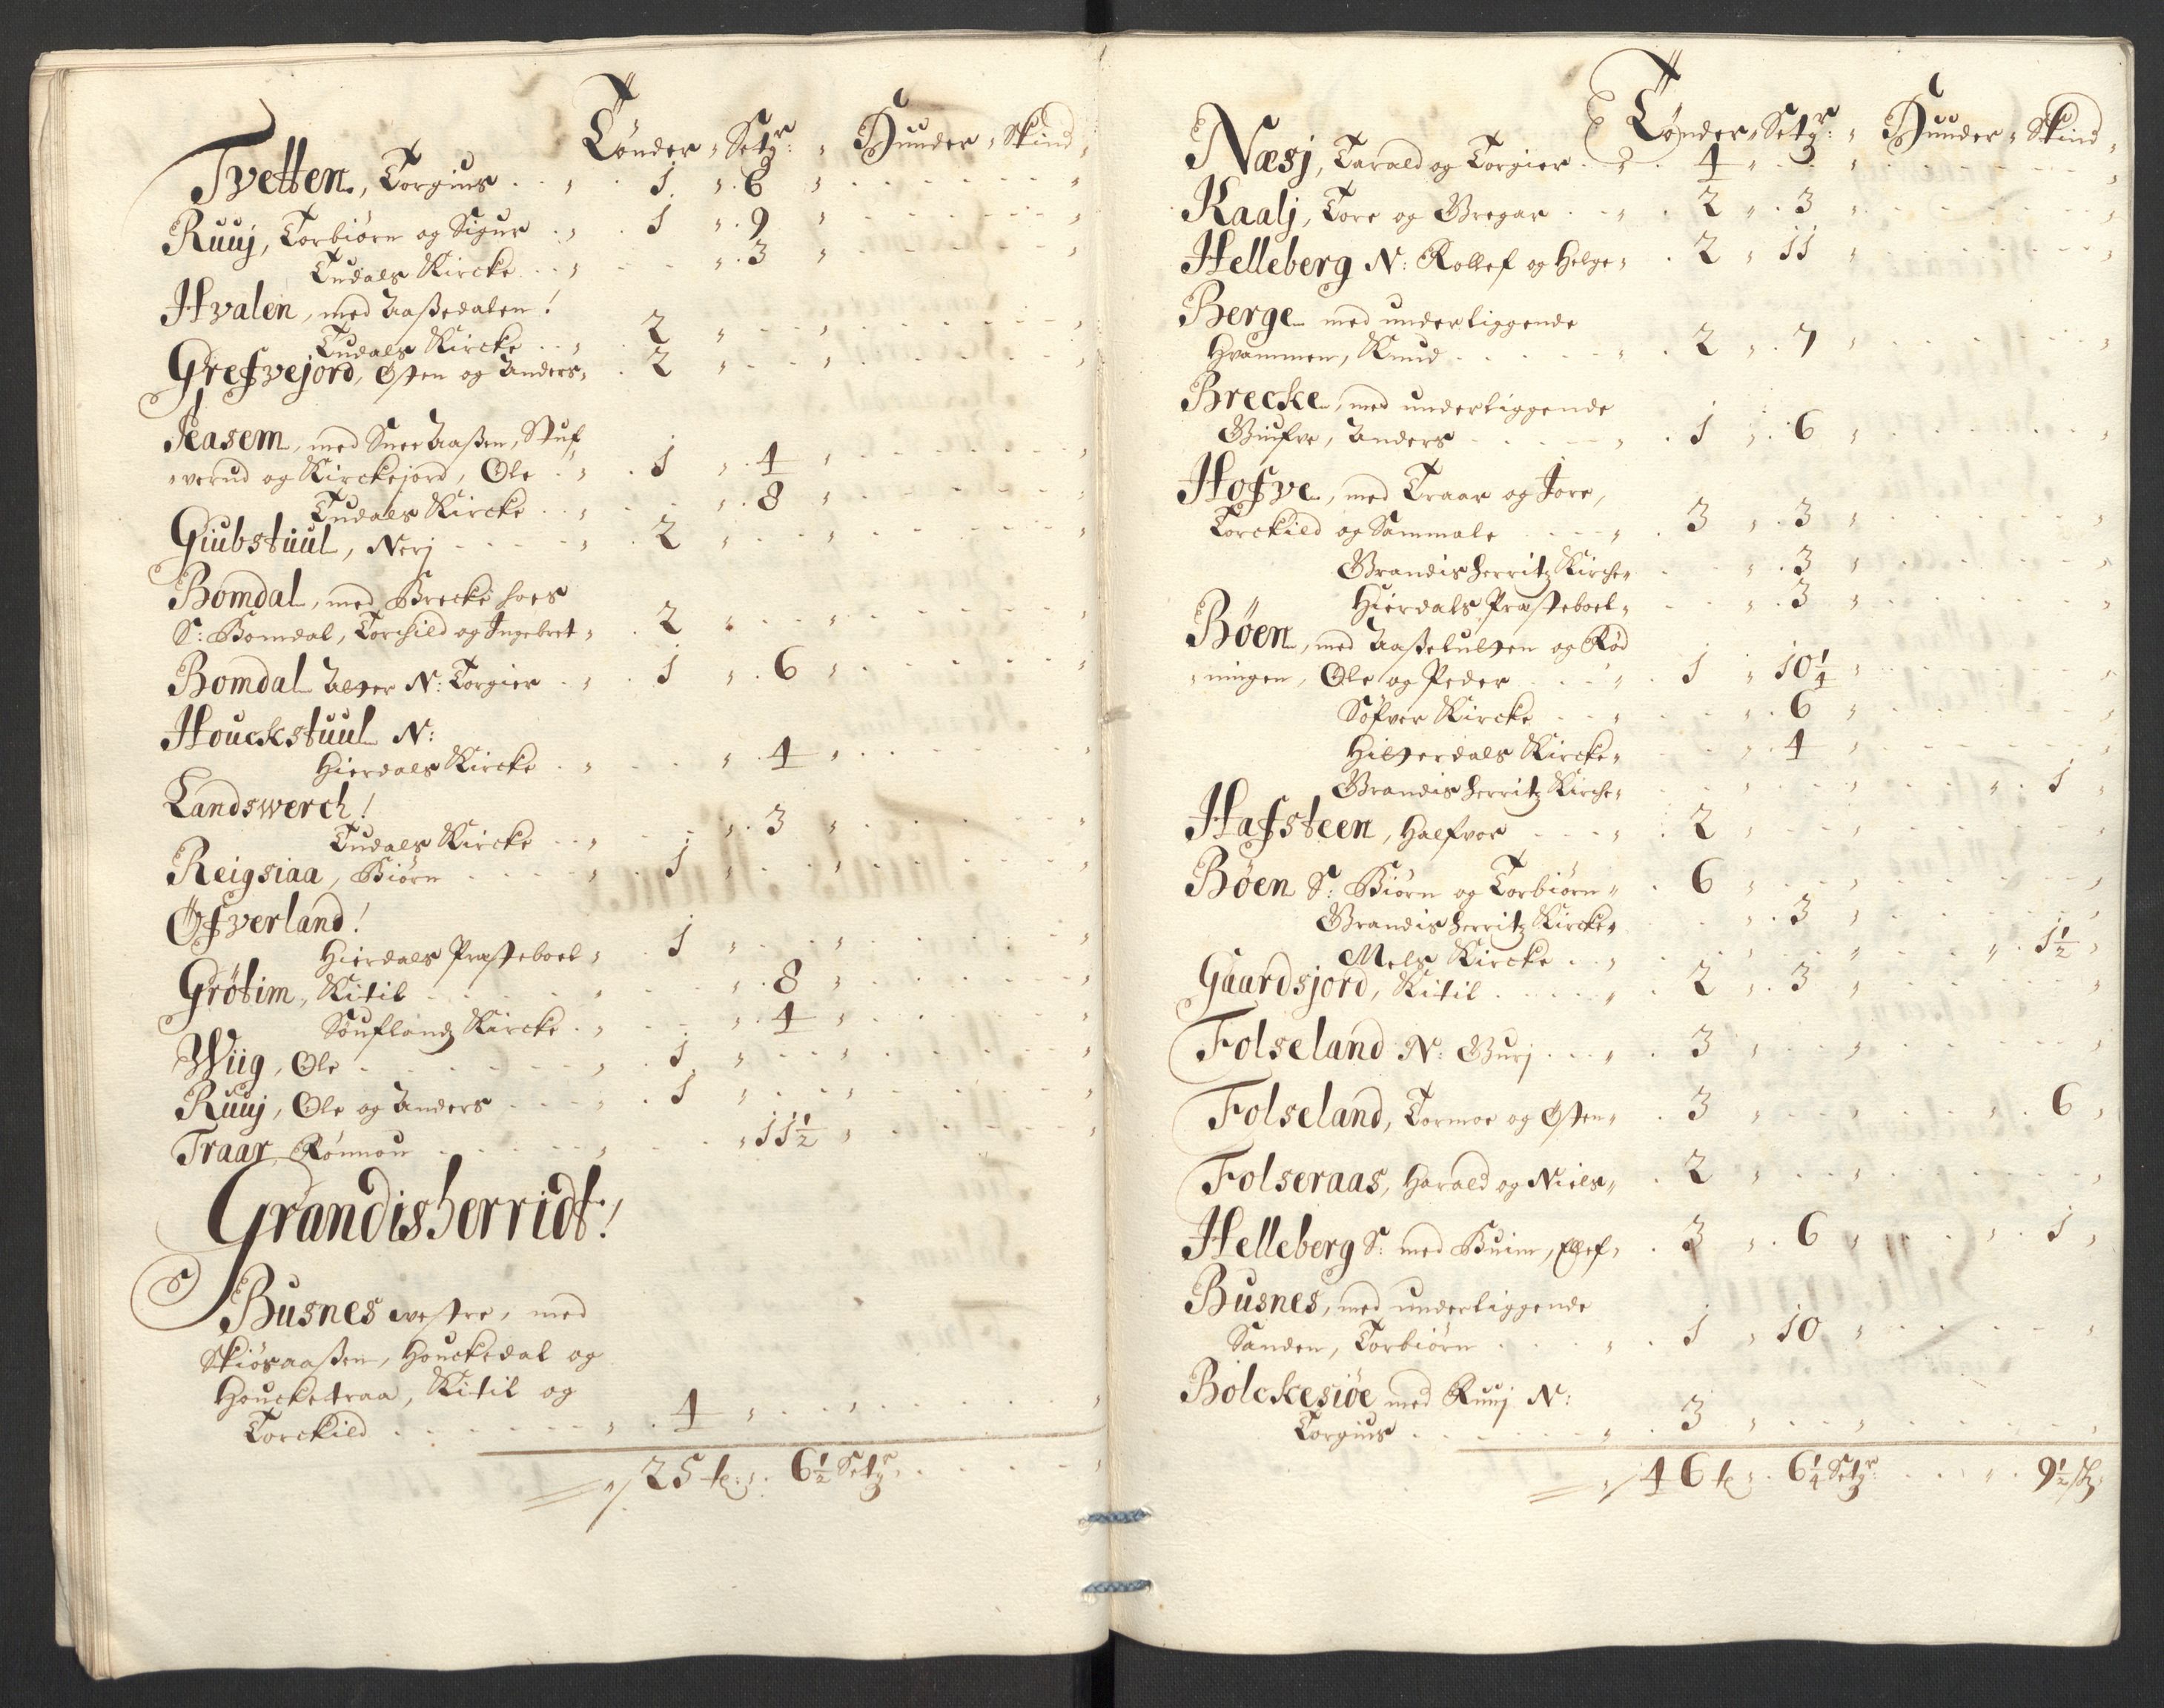 Tønder, Setgr: Huuder, Skind,
Tvetten, Torgius . . 1 . 6
Ruuj, Torbiørn og Sigur . . 1 . 9
Tudals Kircke . . 3
Hvalen, med Aaßedalen!
Tudals Kircke . . 2
Grefvejord, Østen og Anders, . 2
Jeasem, med Snee Aaßen, Stuf,
verud og Kirckejord, Ole . . 1 . 4
Tudals Kircke . . 8
Giubstuul, Nerj . . 2
Bomdal, med Brecke hoes
S: Bomdal, Torchild og Ingebret, . 2
Bomdal Alter N: Torgier . . 1 . 6
Houckstuul N:
Hierdals Kircke . . 4
Landswerch!
Tudals Kircke . . 3
Reigsiaa, Biørn . . 1
Øfverland!
Hierdals Præsteboel, . 1
Grøtim, Kitil . . 8
Souflandz Kircke . . 4
Wiig, Ole . . 1
Ruuj, Ole og Anders . . 1
Traar, Rønnou . . 11 1/2
Grandisherridt!
Busnes vestre, med
Skiøsaaßen, Houckedal og
Houcketraa, Kitil og
Torckild . . 4
25 t: . 6 1/2 Setgr
Tønder, Setgr: Huuder, Skind,
Næsj, Tarald og Torgier . . 4
Kaalj, Tore og Gregar . . 2 . 3
Helleberg N: Rollef og Helge, . 2 . 11
Berge med underliggende
Hvammen, Knud . . 2 . 7
Brecke, med underliggende
Giufve, Anders . . 1 . 6
Hofve, med Traar og Jore,
Torckild og Sammale . . 3 . 3
Grandisherritz Kirche, . 3
Hierdals Præsteboel, . 3
Bøen, med Aaßetulten og Rød
ningen, Ole og Peder . . 1 . 10 1/4
Søfver Kircke . . 6
Hitterdals Kircke, . 4
Grandisherritz Kirche, . . 1
Hafsteen, Halfvor . . 2
Bøen S: Biørn og Torbiørn, . 6
Grandisherritz Kircke, . 3
Mels Kircke . . 1 1/2
Gaardsjord, Kitil . . 2 . 3
Folseland N: Gurj . . 3
Folseland, Tormoe og Østen, . 3 . . 6
Folseraas, Harald og Niels, . 2
Helleberg S: med Buim, Ellef, . 3 . 6 . . 1
Busnes, med underliggende
Sanden, Torbiørn . . 1 . 10
Bolckesiøe med Ruuj N:
Torgius . . 3
46 t . 6 1/4 Setgr . . 9 1/2 sk